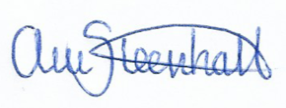 Ann Greenhall